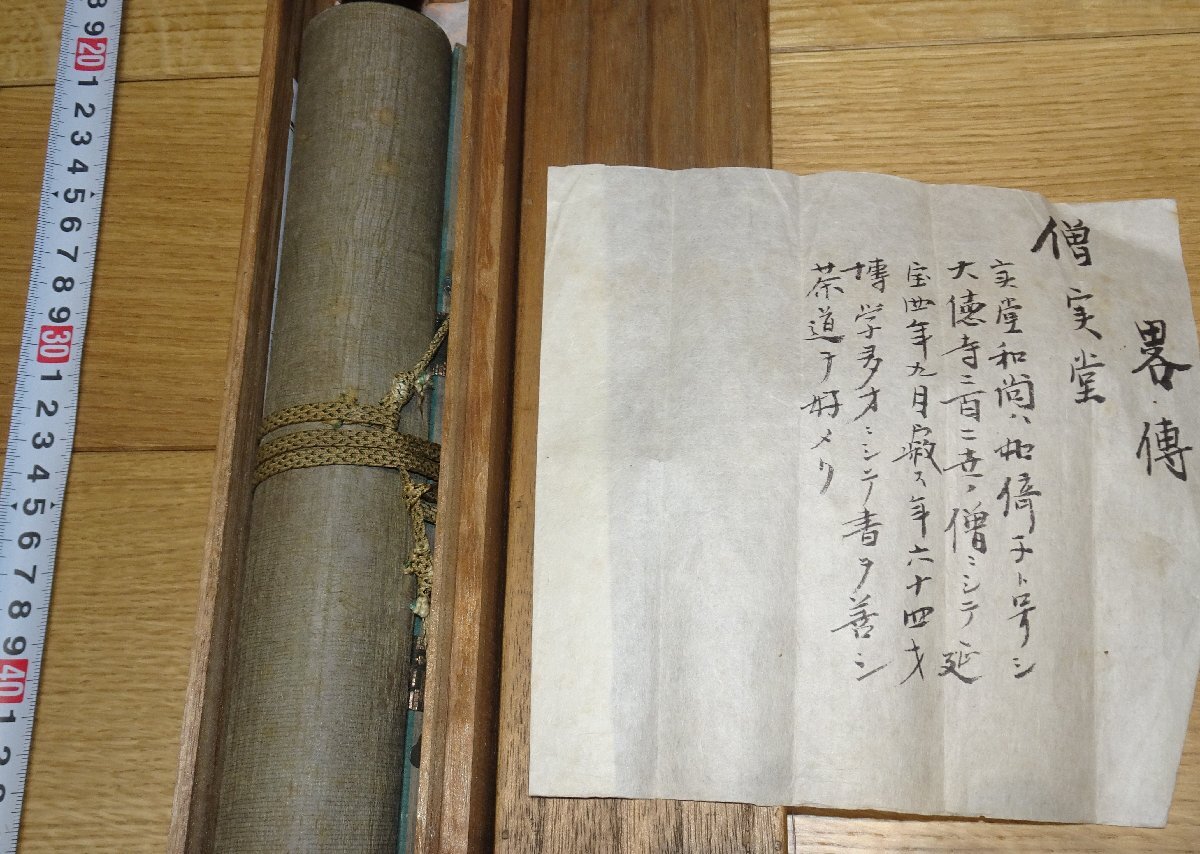 畧傳
僧実堂
実堂和尚ハ如倚子ト号シ
大徳寺三百二世ノ僧ニシテ延
宝四年九月寂ス年六十四才
博学多才ニシテ書ヲ善シ
茶道ヲ好メリ
8 9 20 1 2 3 4 5 6 7 8 9 30 1 2 3 4 5 6 7 8 9 40 1 2